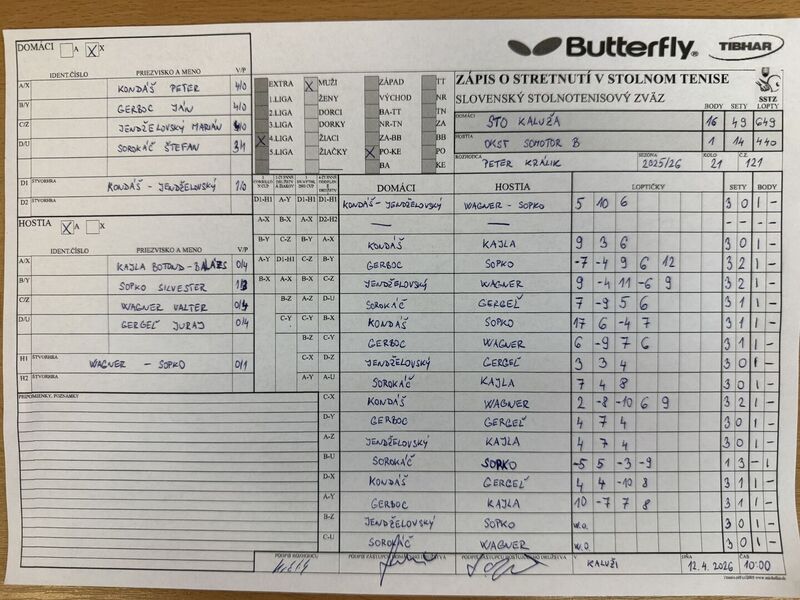 Butterfly. TIBHAR
ZÁPIS O STRETNUTÍ V STOLNOM TENISE
SLOVENSKÝ STOLNOTENISOVÝ ZVÄZ SSTZ
DOMÁCI A X
IDENT.ČÍSLO PRIEZVISKO A MENO V/P
A/X KONDÁŠ PETER 4/0
B/Y GERBOC JÁN 4/0
C/Z JENDŽELOVSKÝ MARIÁN 4/0
D/U SOROKÁČ ŠTEFAN 3/1
D1 ŠTVORHRA KONDÁŠ - JENDŽELOVSKÝ 1/0
D2 ŠTVORHRA
HOSTIA X X
IDENT.ČÍSLO PRIEZVISKO A MENO V/P
A/X KAJLA BOTOND-BALÁZS 0/4
B/Y SOPKO SILVESTER 1/3
C/Z WAGNER VALTER 0/4
D/U GERGEĽ JURAJ 0/4
H1 ŠTVORHRA WAGNER - SOPKO 0/1
H2 ŠTVORHRA
PRIPOMIENKY, POZNÁMKY
EXTRA X MUŽI ZÁPAD TT
1.LIGA ŽENY VÝCHOD NR
2.LIGA DORCI BA-TT TN
3.LIGA DORKY NR-TN ZA
X 4.LIGA ŽIACI ZA-BB BB
5.LIGA ŽIAČKY X PO-KE PO
BA KE
BODY SETY LOPTY
DOMÁCI STO KALUŽA 16 49 649
HOSTIA OKST SCHOTOR B 1 14 440
ROZHODCA PETER KRÁLIK SEZÓNA 2025/26 KOLO 21 Č.Z. 121
DOMÁCI HOSTIA LOPTIČKY SETY BODY
D1-H1 A-Y D1-H1 D1-H1 KONDÁŠ - JENDŽELOVSKÝ WAGNER - SOPKO 5 10 6 3 0 1 -
A-X B-X A-X D2-H2 — — - - - -
B-Y C-Z B-Y A-X KONDÁŠ KAJLA 9 3 6 3 0 1 -
A-Y D1-H1 C-Z B-Y GERBOC SOPKO -7 -4 9 6 12 3 2 1 -
B-X A-X B-X C-Z JENDŽELOVSKÝ WAGNER 9 -4 11 -6 9 3 2 1 -
B-Z A-Z D-U SOROKÁČ GERGEĽ 7 -9 5 6 3 1 1 -
C-Y C-Y B-X KONDÁŠ SOPKO 17 6 -4 7 3 1 1 -
B-Z C-Y GERBOC WAGNER 6 -9 7 6 3 1 1 -
C-X D-Z JENDŽELOVSKÝ GERGEĽ 3 3 4 3 0 1 -
A-Y A-U SOROKÁČ KAJLA 7 4 8 3 0 1 -
C-X KONDÁŠ WAGNER 2 -8 -10 6 9 3 2 1 -
D-Y GERBOC GERGEĽ 4 7 4 3 0 1 -
A-Z JENDŽELOVSKÝ KAJLA 4 7 4 3 0 1 -
B-U SOROKÁČ SOPKO -5 5 -3 -9 1 3 - 1
D-X KONDÁŠ GERGEĽ 4 4 -10 8 3 1 1 -
A-Y GERBOC KAJLA 10 -7 7 8 3 1 1 -
B-Z JENDŽELOVSKÝ SOPKO w.o. 3 0 1 -
C-U SOROKÁČ WAGNER w.o. 3 0 1 -
PODPIS ROZHODCU PODPIS ZÁSTUPCU DOMÁCEHO DRUŽSTVA PODPIS ZÁSTUPCU HOSTUJÚCEHO DRUŽSTVA V KALUŽI DŇA 12.4.2026 ČAS 10:00